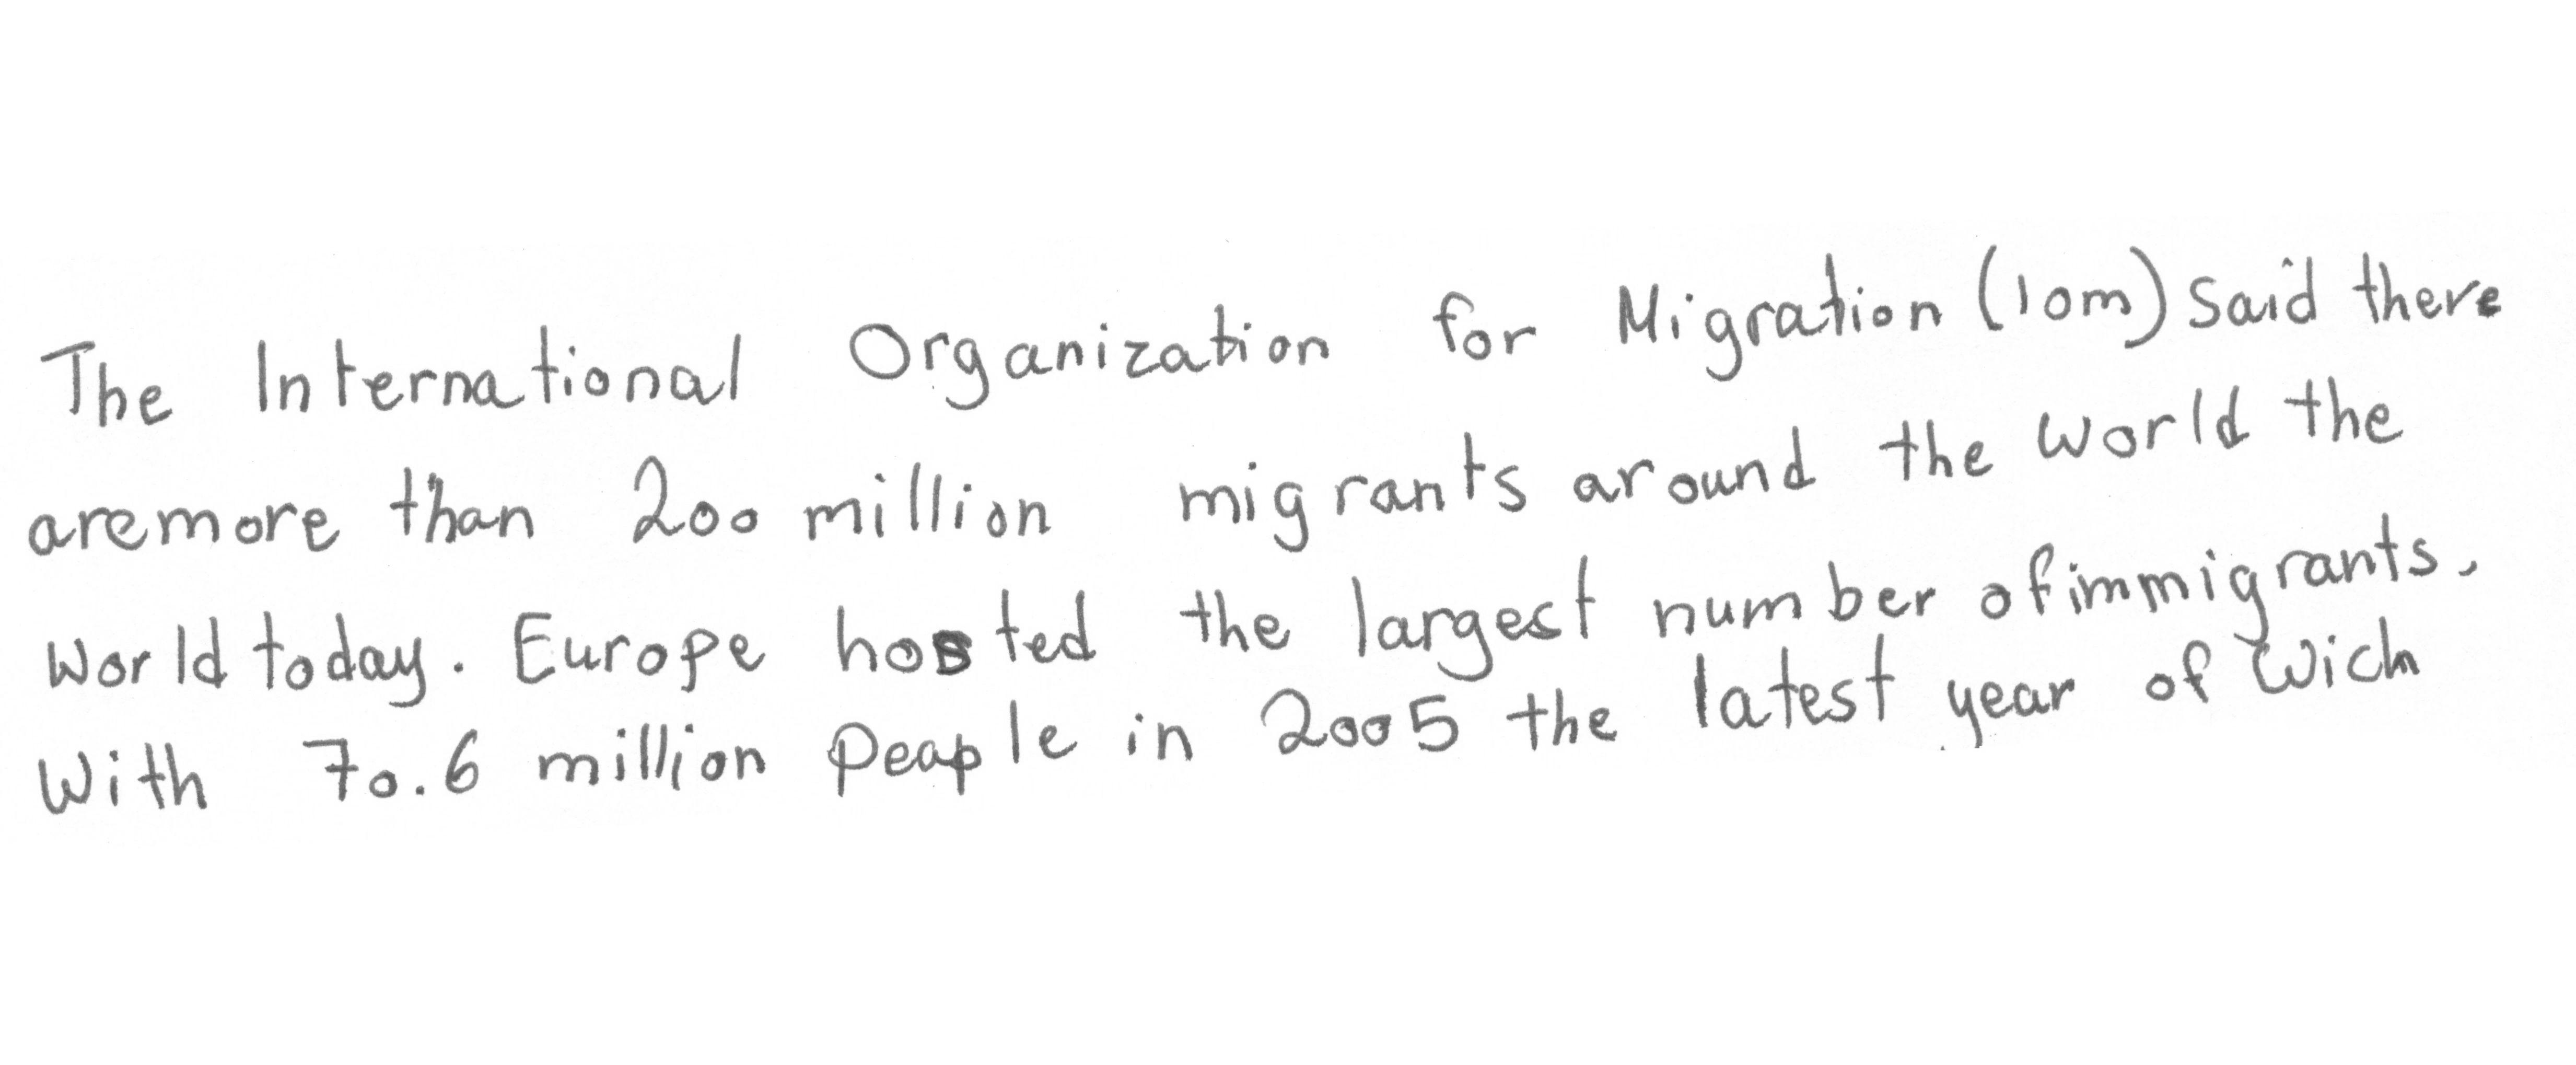 The International Organization for Migration (Iom) said there
are more than 200 million migrants around the world the
world today. Europe hosted the largest number of immigrants,
With 70.6 million Peaple in 2005 the latest year of wich